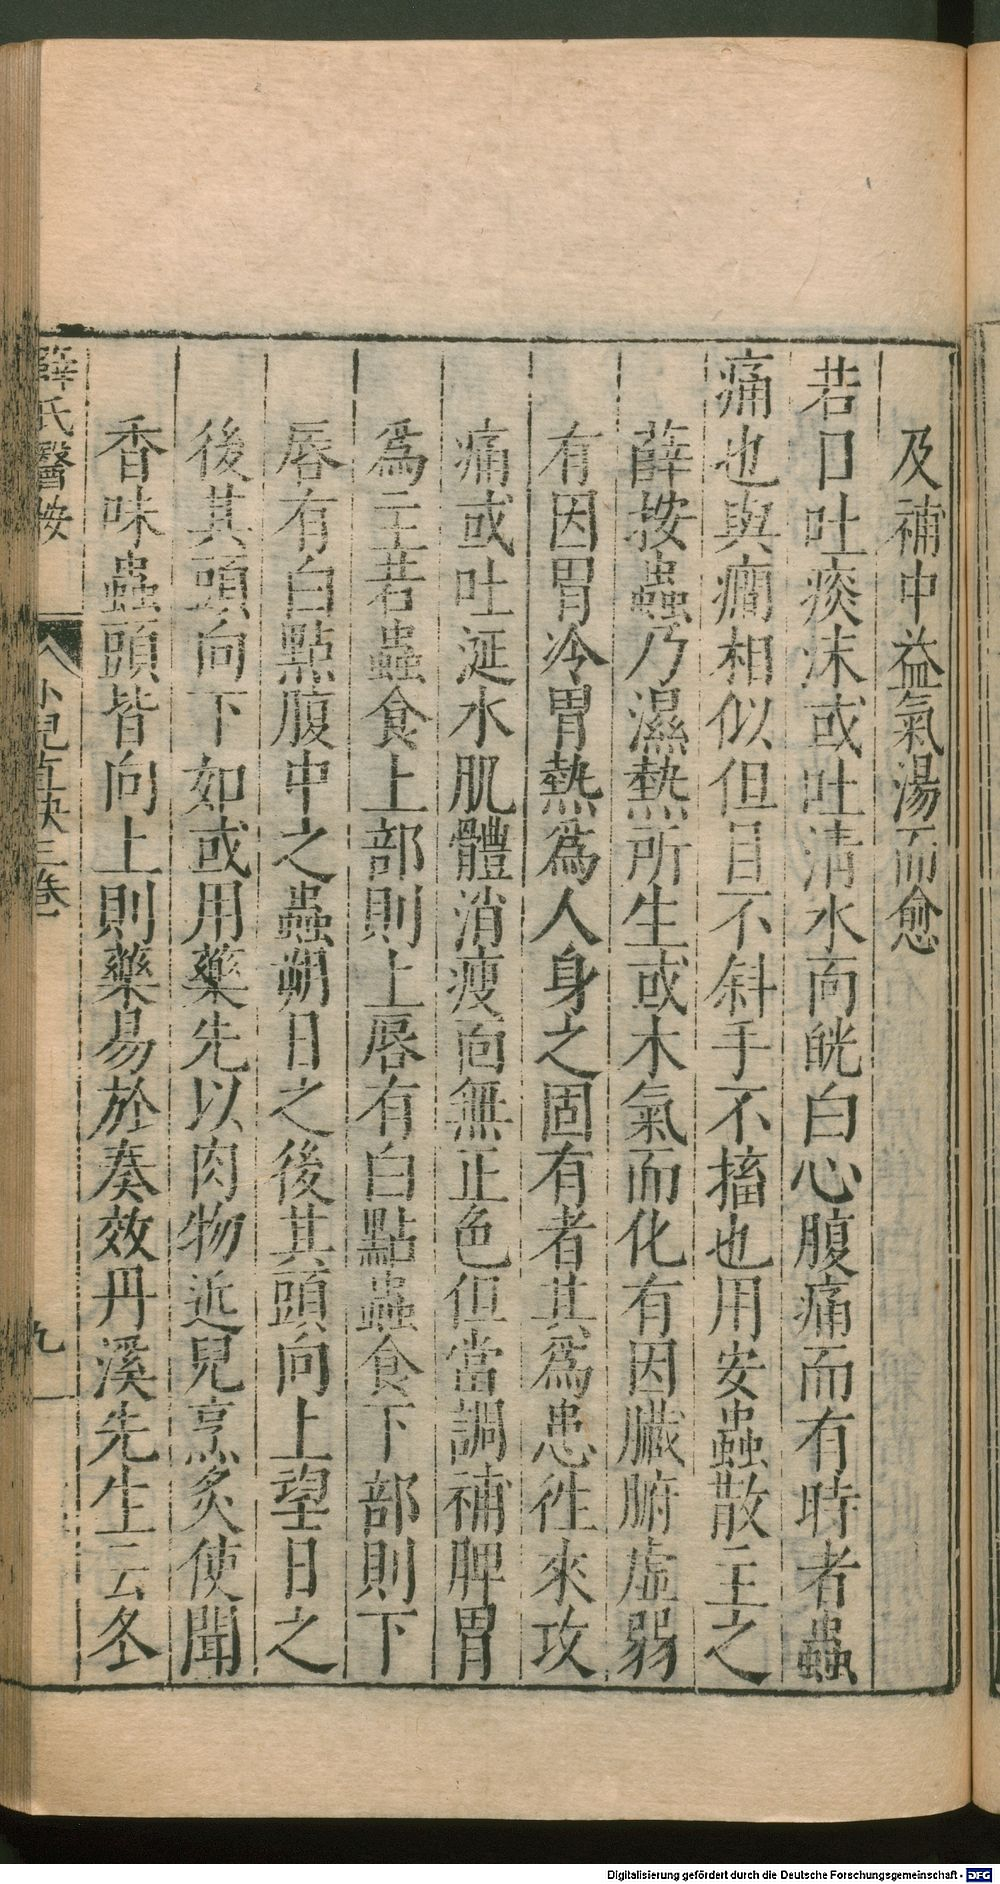 及補中益氣湯而愈
若口吐痰沫或吐清水面㿠白心腹痛而有時者蟲
痛也與癇相似但目不斜手不搐也用安蟲散主之
薛按蟲乃濕熱所生或木氣而化有因臟腑虛弱
有因胃冷胃熱爲人身之固有者其爲患徃來攻
痛或吐涎水肌體消瘦面無正色但當調補脾胃
爲主若蟲食上部則上唇有白點蟲食下部則下
唇有白點腹中之蟲朔日之後其頭向上望日之
後其頭向下如或用藥先以肉物近兒烹炙使聞
香味蟲頭皆向上則藥易於奏效丹溪先生云冬
薛氏醫按
小兒直訣三卷
九
Digitalisierung gefördert durch die Deutsche Forschungsgemeinschaft - DFG